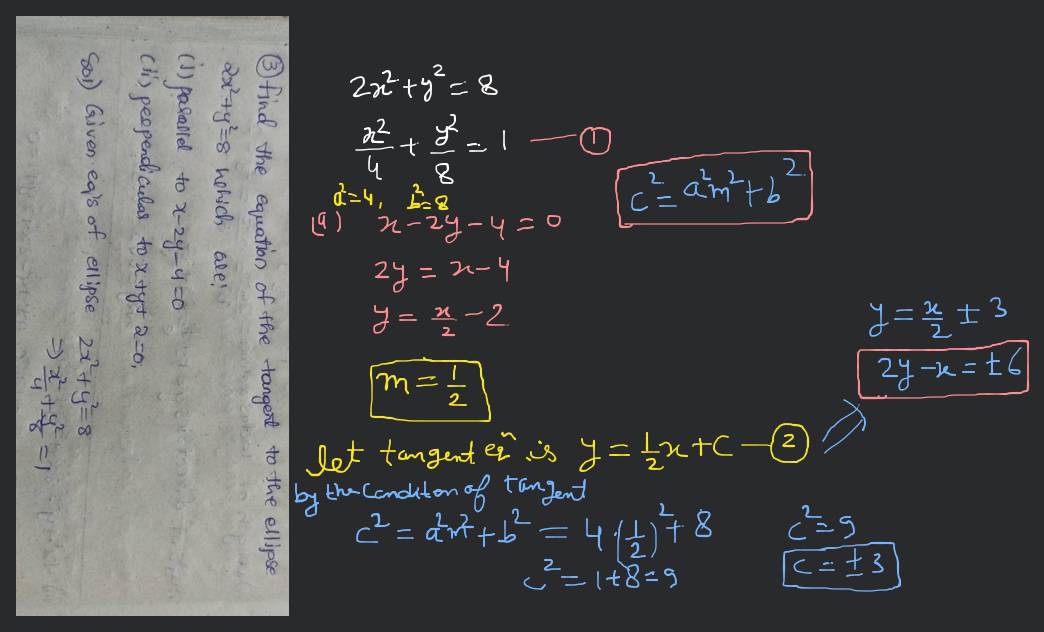 ③ find the equation of the tangent to the ellipse
2x²+y²=8 which are:
(i) parallel to x-2y-4=0
(ii) perpendicular to x+y+2=0,
Sol) Given eq's of ellipse 2x²+y²=8
⇒ x²/4 + y²/8 = 1
2x²+y² = 8
x²/4 + y²/8 = 1 — ①
a²=4, b²=8
c² = a²m²+b²
(a) x-2y-4=0
2y = x-4
y = x/2 -2
m = 1/2
let tangent eqⁿ is y = 1/2x+C — ②
by the Conditon of tangent
c² = a²m²+b² = 4·(1/2)²+8
c² = 1+8=9
c²=9
c = ±3
y = x/2 ± 3
2y-x = ±6